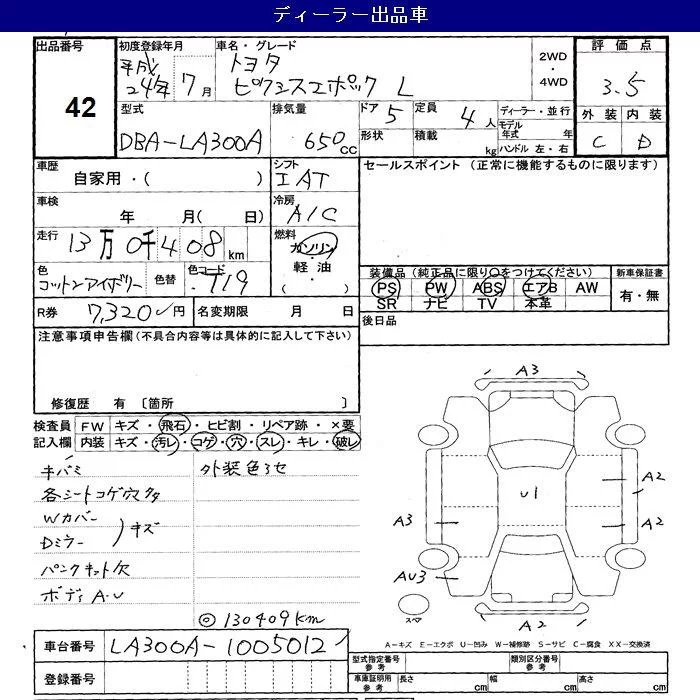 ディーラー出品車
出品番号
42
初度登録年月
平成
24年 7月
車名・グレード
トヨタ
ピクシスエポック L
2WD
・
4WD
評価点
3.5
外装 内装
C D
型式
DBA-LA300A
排気量
650cc
ドア 5
定員 4人
形状
積載 kg
ディーラー・並行
モデル年式 年
ハンドル 左・右
車歴
自家用・( )
シフト
IAT
セールスポイント (正常に機能するものに限ります)
車検
年 月( 日)
冷房
A/C
走行
13万0千408km
燃料
ガソリン
・
軽油
・
色
コットンアイボリー
色替
色コード
T19
装備品(純正品に限り○をつけてください)
PS PW ABS エアB AW
SR ナビ TV 本革
新車保証書
有・無
R券 7,320円
名変期限 月 日
後日品
注意事項申告欄(不具合内容等は具体的に記入して下さい)
修復歴 有 〔箇所 〕
検査員記入欄
FW キズ・飛石・ヒビ割・リペア跡・×要
内装 キズ・汚レ・コゲ・穴・スレ・キレ・破レ
キバミ
外装色アセ
各シートコゲ穴
Wカバー
Dミラー )キズ
パンクキット欠
ボディA・U
◎130409km
A3
U1
A2
A3
A2
AU3
スペア
A2
A-キズ E-エクボ U-凹み W-補修跡 S-サビ C-腐食 XX-交換済
車台番号 LA300A-1005012
登録番号
型式指定番号
参考
類別区分番号
参考
車庫証明用
参考
長さ cm 幅 cm 高さ cm